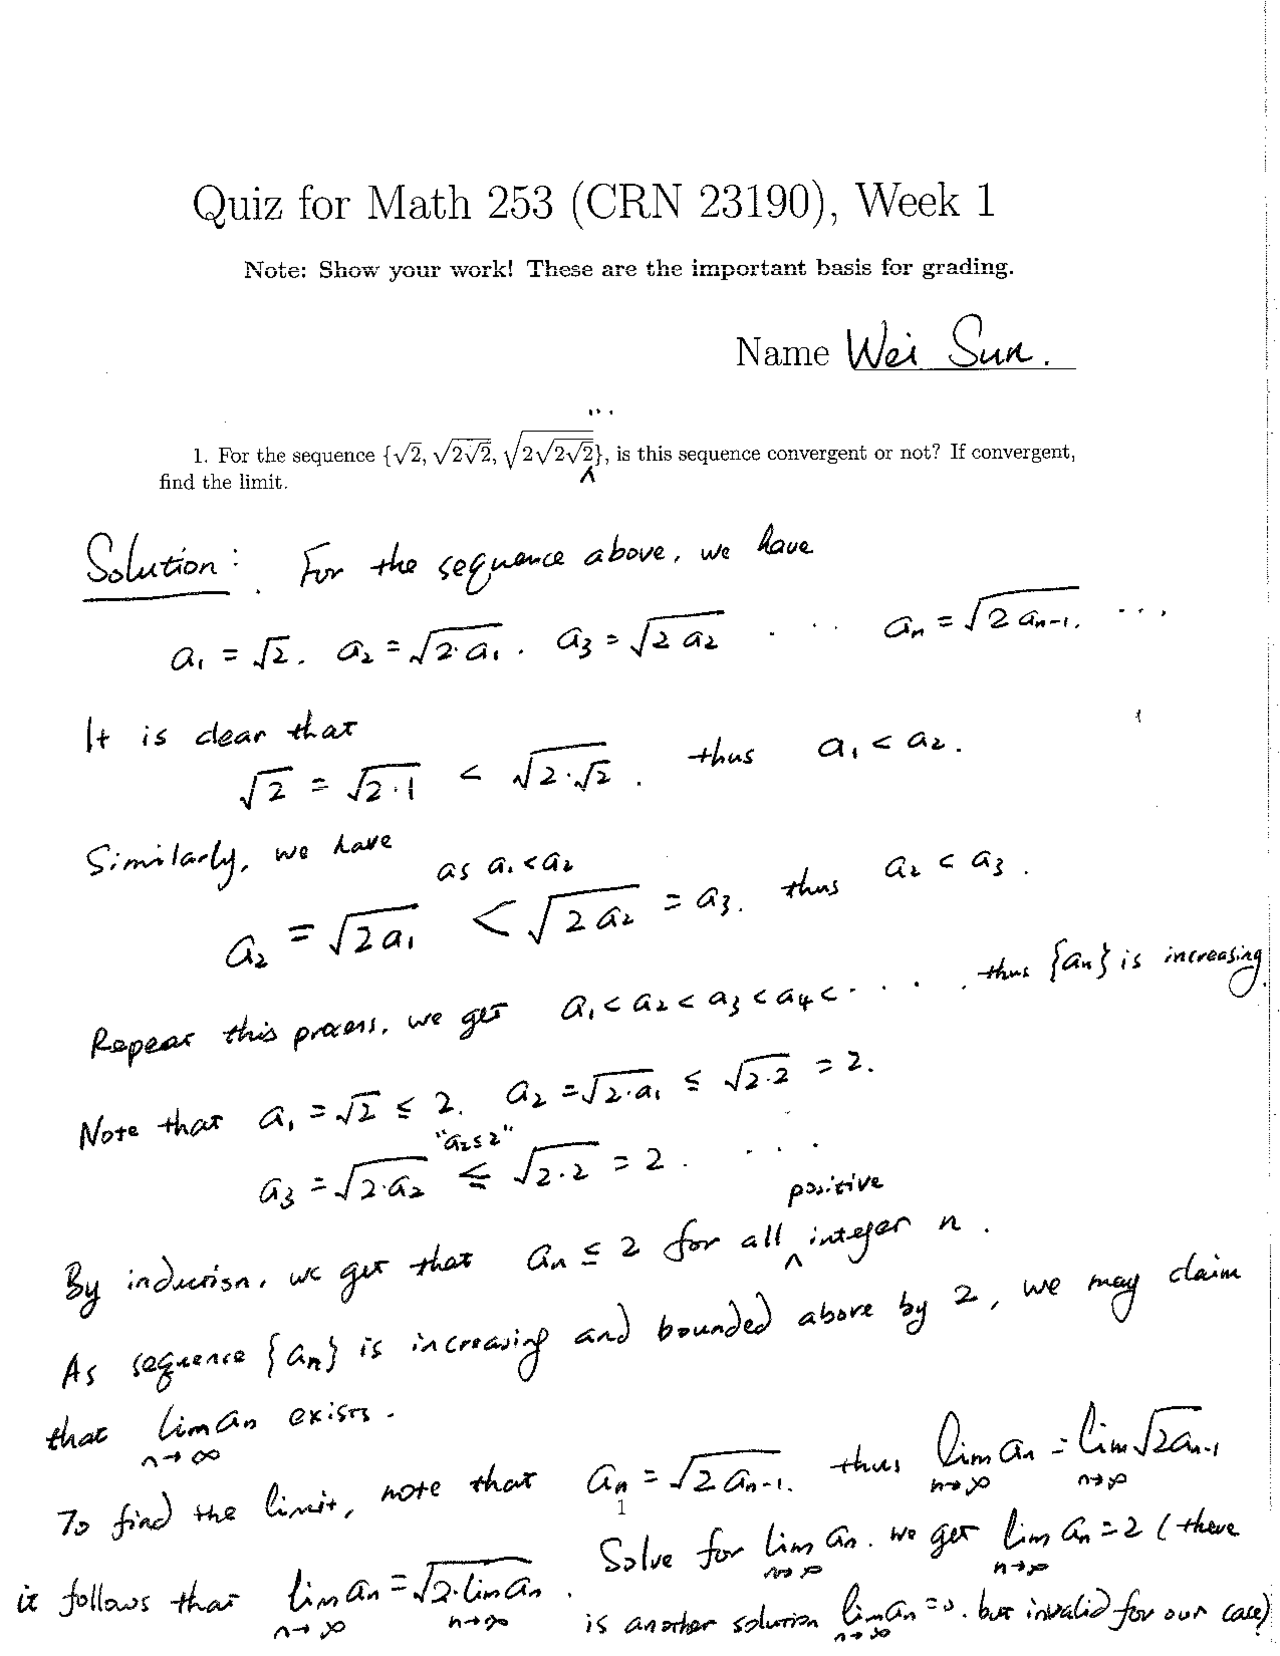 Quiz for Math 253 (CRN 23190), Week 1
Note: Show your work! These are the important basis for grading.
Name Wei Sun.
1. For the sequence {√2, √(2√2), √(2√(2√2)), ...}, is this sequence convergent or not? If convergent,
find the limit.
Solution: For the sequence above, we have
a₁ = √2. a₂ = √(2·a₁). a₃ = √(2 a₂) ... aₙ = √(2 aₙ₋₁). ...
It is clear that
√2 = √(2·1) < √(2·√2). thus a₁ < a₂.
Similarly, we have
as a₁ < a₂
a₂ = √(2a₁) < √(2a₂) = a₃. thus a₂ < a₃.
Repeat this process, we get a₁ < a₂ < a₃ < a₄ < .... thus {aₙ} is increasing.
Note that a₁ = √2 ≤ 2. a₂ = √(2·a₁) ≤ √(2·2) = 2.
"a₂≤2"
a₃ = √(2·a₂) ≤ √(2·2) = 2. ...
By induction, we get that aₙ ≤ 2 for all positive integer n.
As sequence {aₙ} is increasing and bounded above by 2, we may claim
that lim n→∞ aₙ exists.
To find the limit, note that aₙ = √(2aₙ₋₁). thus lim n→∞ aₙ = lim n→∞ √(2aₙ₋₁)
1
it follows that lim n→∞ aₙ = √(2·lim n→∞ aₙ). Solve for lim n→∞ aₙ. we get lim n→∞ aₙ = 2 (there
is another solution lim n→∞ aₙ = 0. but invalid for our case)